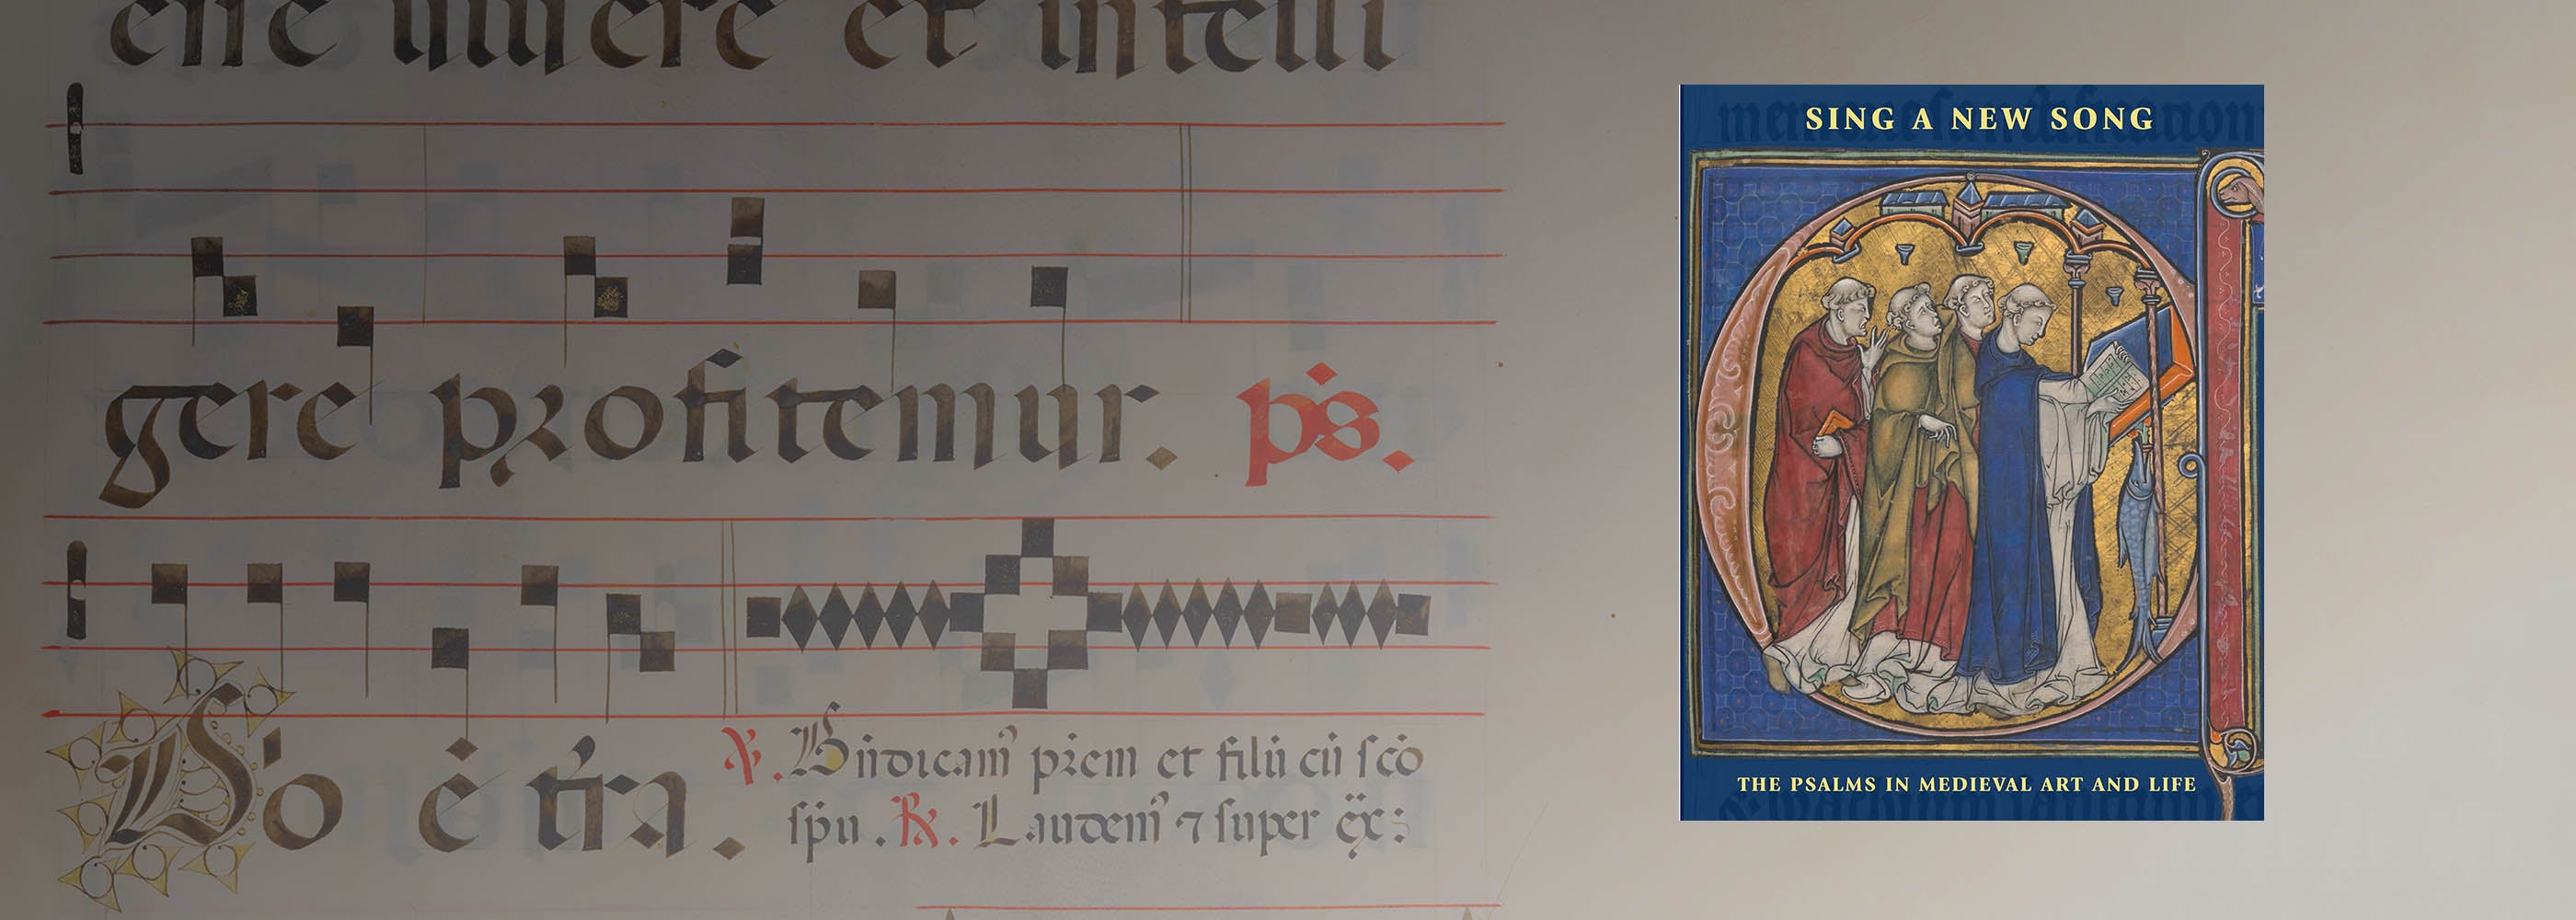 esse vivere et intelli
gere profitemur. ps.
Do e tra.
V. Bn̄dicam᷒ prem et filiū cū sco
spu. R. Laudem᷒ ⁊ super ex:
SING A NEW SONG
THE PSALMS IN MEDIEVAL ART AND LIFE